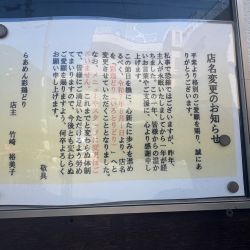 店名変更のお知らせ
平素より格別のご愛顧を賜り、誠にありがとうございます。
私事で恐縮ではございますが、昨年、主人が永眠いたしましてから一年が経ちました。
皆様からの温かいお言葉やご支援に、心より感謝申し上げます。
この節目を機に、心新たに歩みを進めるべく、
店名を
変更させていただくこととなりました。
なお、
これまでと変わらぬ体制で、皆様にご満足いただけるよう努めてまいりますので、今後とも変わらぬご愛顧を賜りますよう、何卒よろしくお願い申し上げます。
敬具
らあめん彩鶏どり
店主 竹崎 裕美子